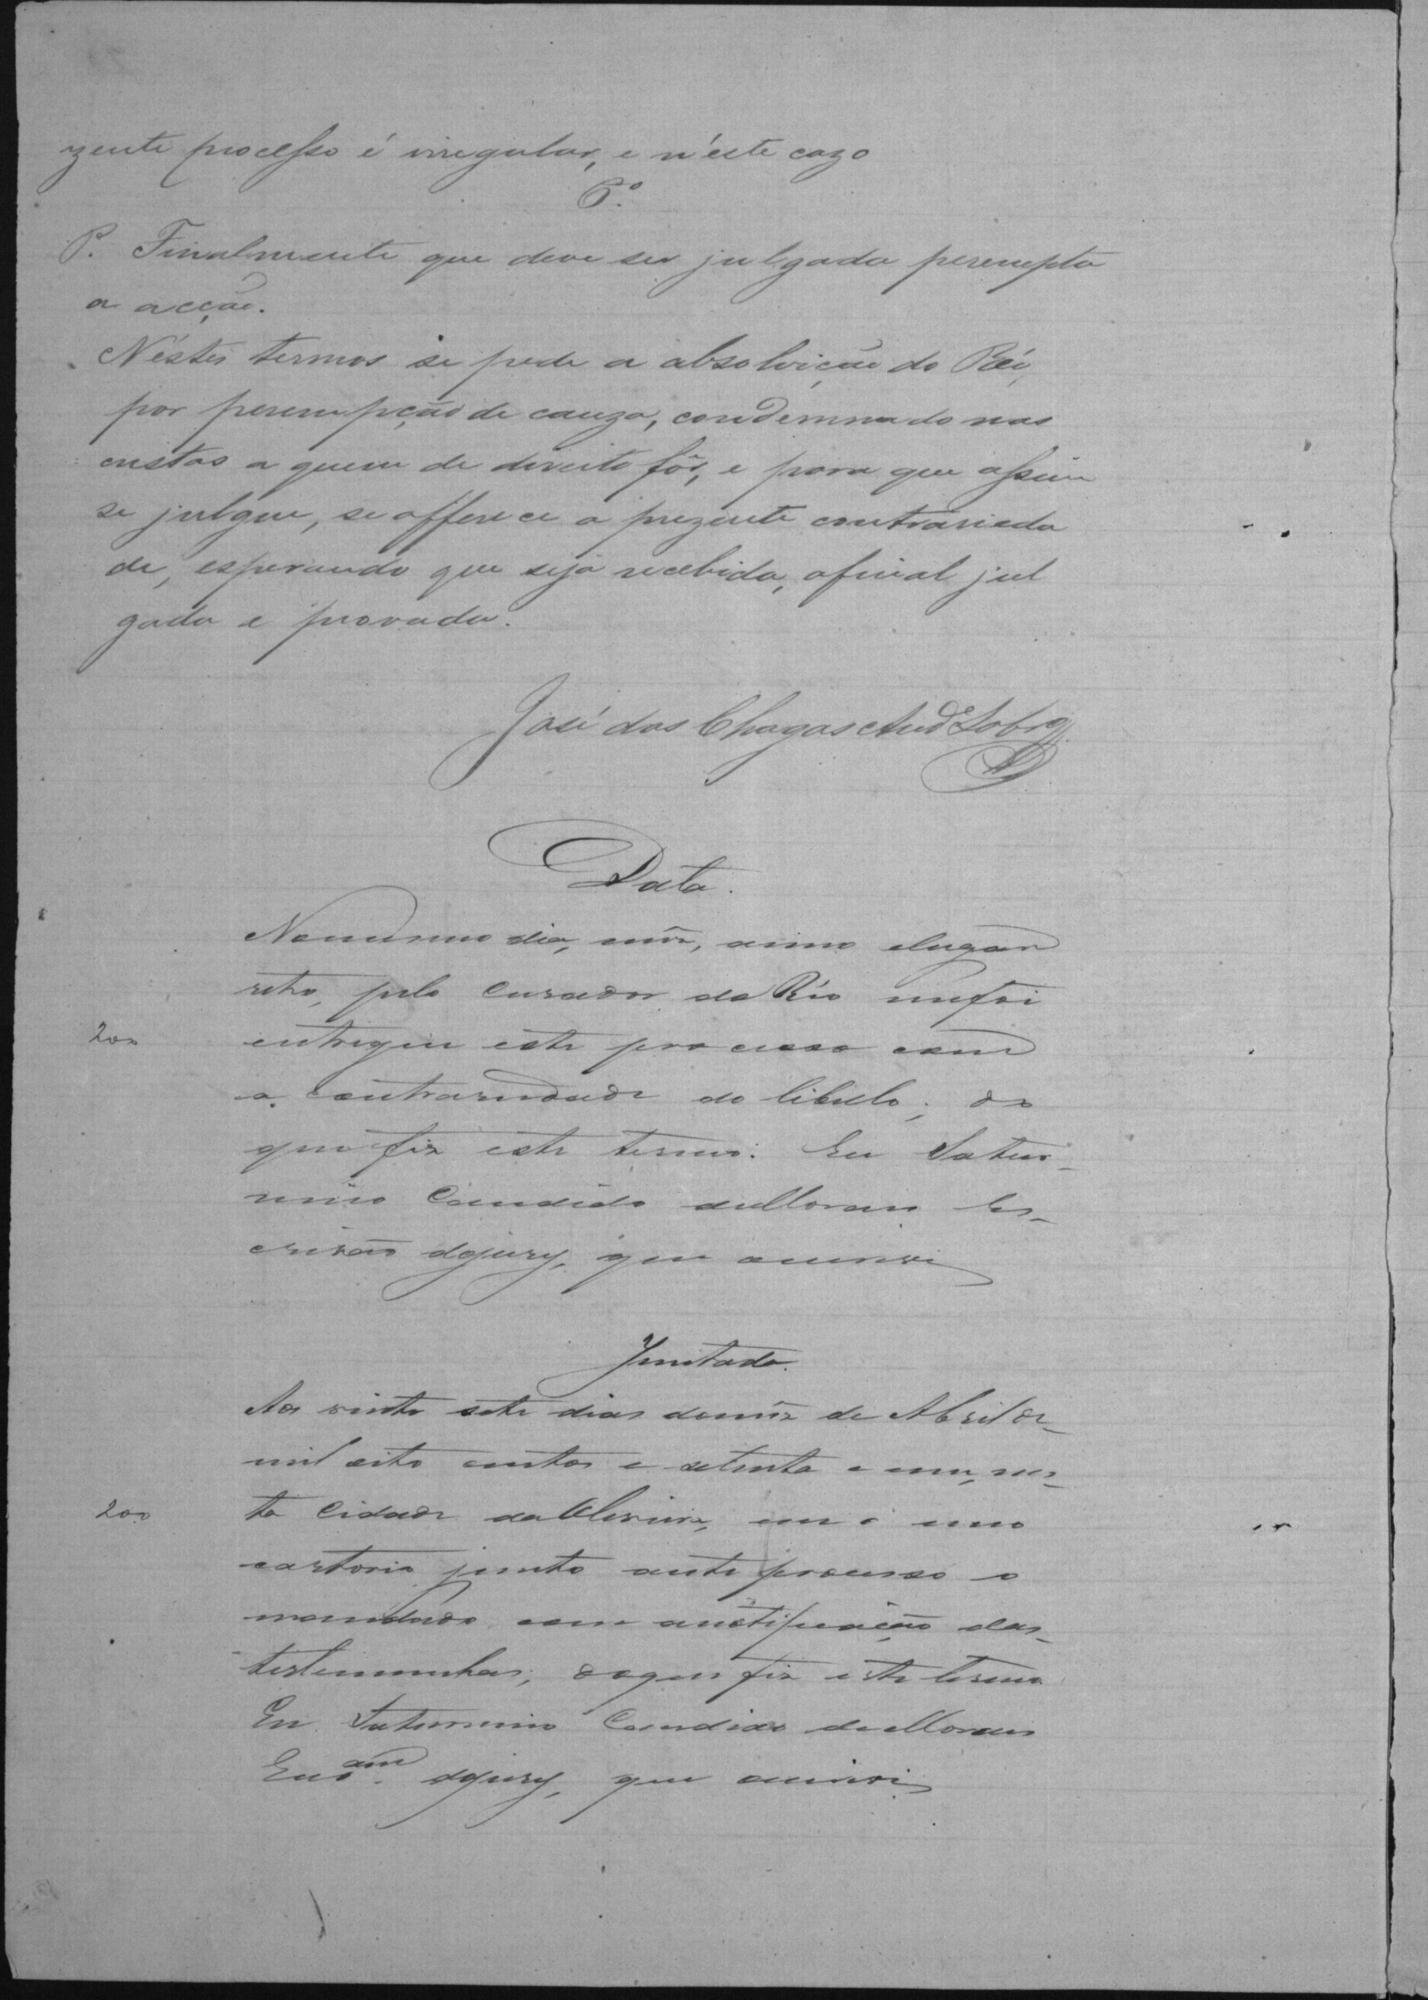 zente processo é irregular, e n'éste cazo
6.º
P. Finalmente que deve ser julgada perempta
a acção.
Néstes termos se pede a absolvição do Réo,
por perempção de cauza, condemnado nas
custas a quem de direito fôr, e para que assim
se julgue, se offerece a prezente contrarieda
de, esperando que seja recebida, afinal jul
gada e provada.
José das Chagas And.e Sobr.o
Data.
No mesmo dia, mês, anno e lugar
retro, pelo Curador do Réo me foi
200 entregue este processo com
a contrariedade do libello; do
que fiz este termo. Eu Satur-
nino Candido de Moraes Es-
crivão do jury, que escrevi
Juntada.
Aos vinte sete dias do mês de Abril de
mil oito centos e setenta e um, nes-
200 ta Cidade da Oliveira, em o meu
cartorio junto a este processo o
mandado com a notificação das
testemunhas; do que fiz este termo
Eu Saturnino Candido de Moraes
Escr.am do jury, que escrevi